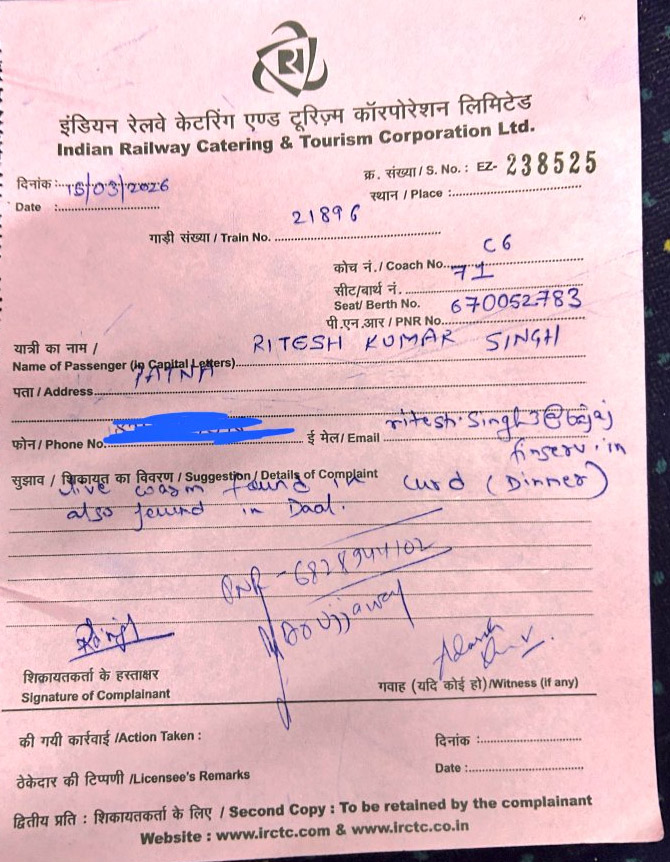 इंडियन रेलवे केटरिंग एण्ड टूरिज़्म कॉरपोरेशन लिमिटेड
Indian Railway Catering & Tourism Corporation Ltd.
क्र. संख्या / S. No. : EZ- 238525
दिनांक :- 15/03/2026
Date :
स्थान / Place :
गाड़ी संख्या / Train No. 21896
कोच नं./ Coach No. C6
सीट/बार्थ नं. 71
Seat/ Berth No.
पी.एन.आर / PNR No. 670052783
यात्री का नाम /
Name of Passenger (in Capital Letters) RITESH KUMAR SINGH
पता / Address PATNA
फोन/ Phone No. ई मेल/ Email ritesh.singh3@bajaj
finserv.in
सुझाव / शिकायत का विवरण / Suggestion / Details of Complaint
live worm found in curd (Dinner)
also found in Daal.
PNR - 6828944102
शिकायतकर्ता के हस्ताक्षर
Signature of Complainant
गवाह (यदि कोई हो)/Witness (if any)
की गयी कार्रवाई /Action Taken :
दिनांक :
ठेकेदार की टिप्पणी /Licensee's Remarks
Date :
द्वितीय प्रति : शिकायतकर्ता के लिए / Second Copy : To be retained by the complainant
Website : www.irctc.com & www.irctc.co.in